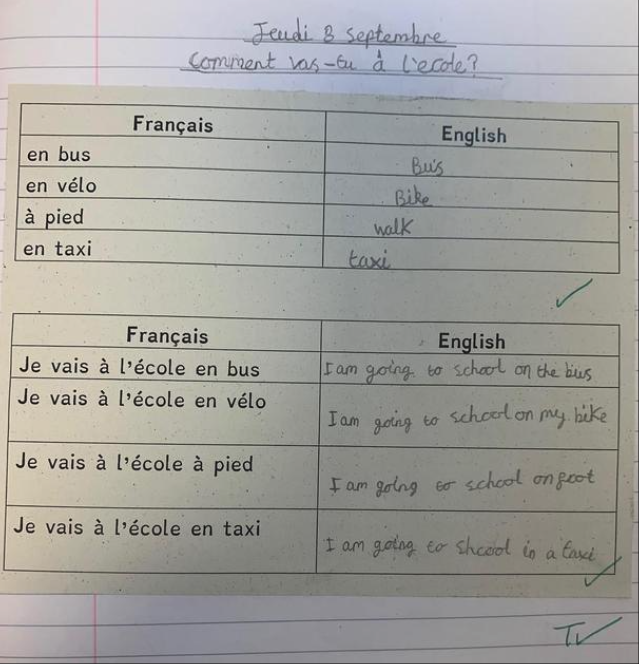 Jeudi 8 septembre
Comment vas-tu à l'ecole?
Français English
en bus Bus
en vélo Bike
à pied walk
en taxi taxi
Français English
Je vais à l'école en bus I am going to school on the bus
Je vais à l'école en vélo I am going to school on my bike
Je vais à l'école à pied I am going to school on foot
Je vais à l'école en taxi I am going to shcool in a taxi